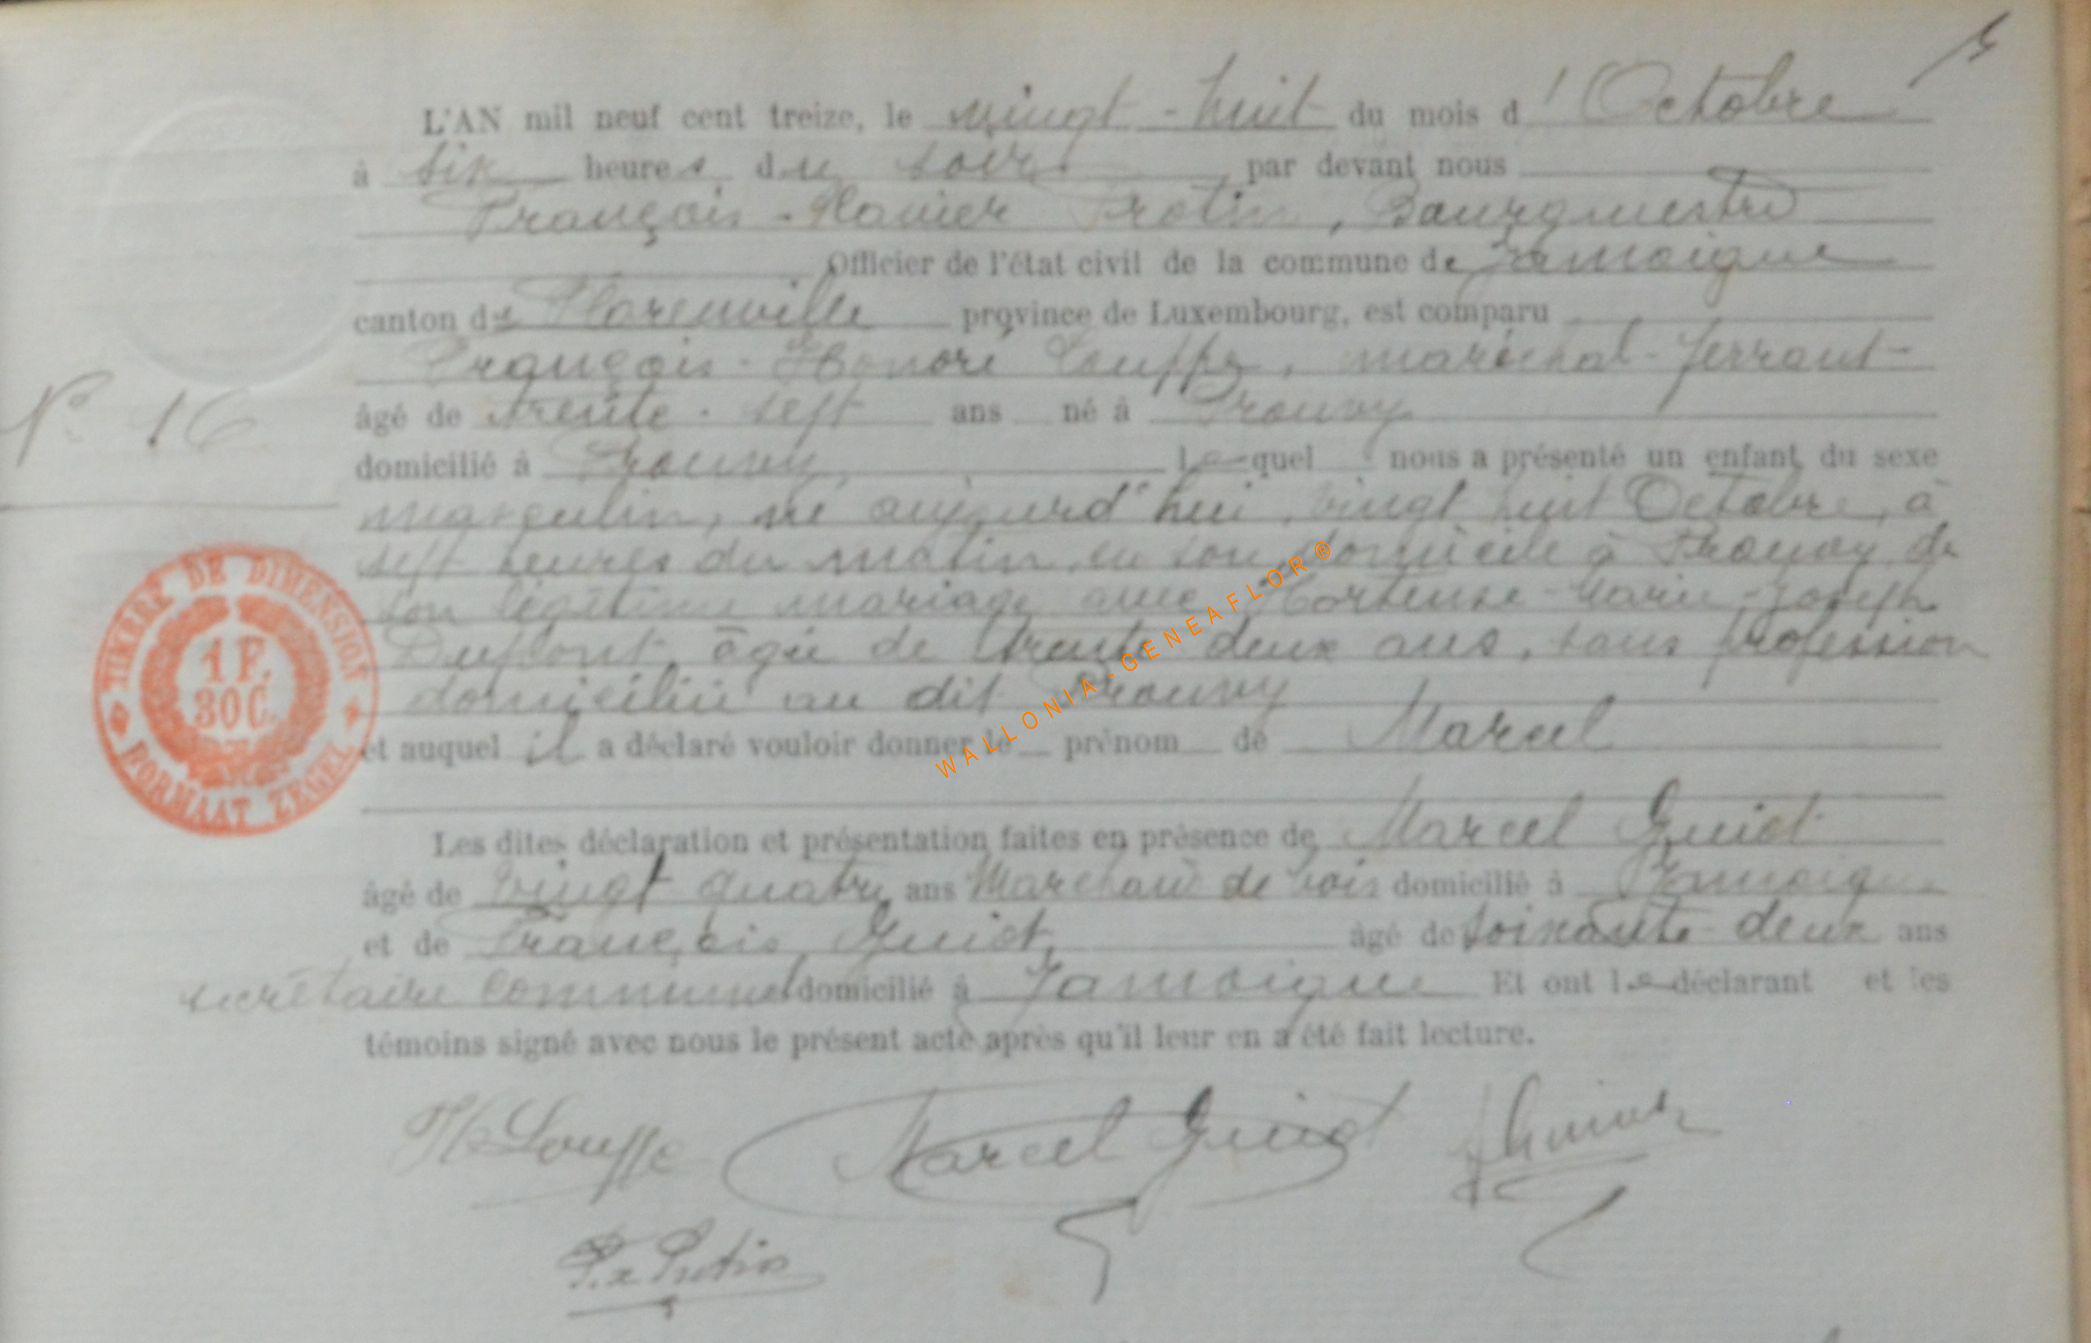 L'AN mil neuf cent treize, le vingt-huit du mois d'Octobre
à six heures du soir par devant nous
François-Xavier Protin, Bourgmestre
Officier de l'état civil de la commune de Jamoigne
canton de Florenville province de Luxembourg, est comparu
François-Honoré Louppe, maréchal-ferrant
N° 16
âgé de trente-sept ans né à Prouvy
domicilié à Prouvy lequel nous a présenté un enfant du sexe
masculin, né aujourd'hui, vingt huit Octobre, à
sept heures du matin, en son domicile à Prouvy de
son légitime mariage avec Hortense-Marie-Joseph
Dupont, âgée de trente deux ans, sans profession
domiciliée au dit Prouvy
et auquel il a déclaré vouloir donner le prénom de Marcel
Les dites déclaration et présentation faites en présence de Marcel Guiot
âgé de vingt quatre ans Marchand de bois domicilié à Jamoigne
et de François Guiot, âgé de soixante-deux ans
secrétaire communal domicilié à Jamoigne Et ont le déclarant et les
témoins signé avec nous le présent acte après qu'il leur en a été fait lecture.
Louppe Marcel Guiot
F.x Protin
TIMBRE DE DIMENSION
1 F.
30 C.
FORMAAT ZEGEL
WALLONIA-GENEAFLOR®